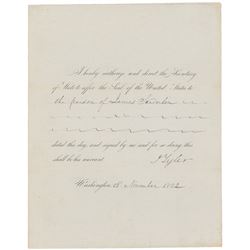 I hereby authorize and direct the Secretary
of State to affix the Seal of the United States to
the pardon of James
dated this day, and signed by me and for so doing this
shall be his warrant.
J Tyler
Washington 18 November 1842